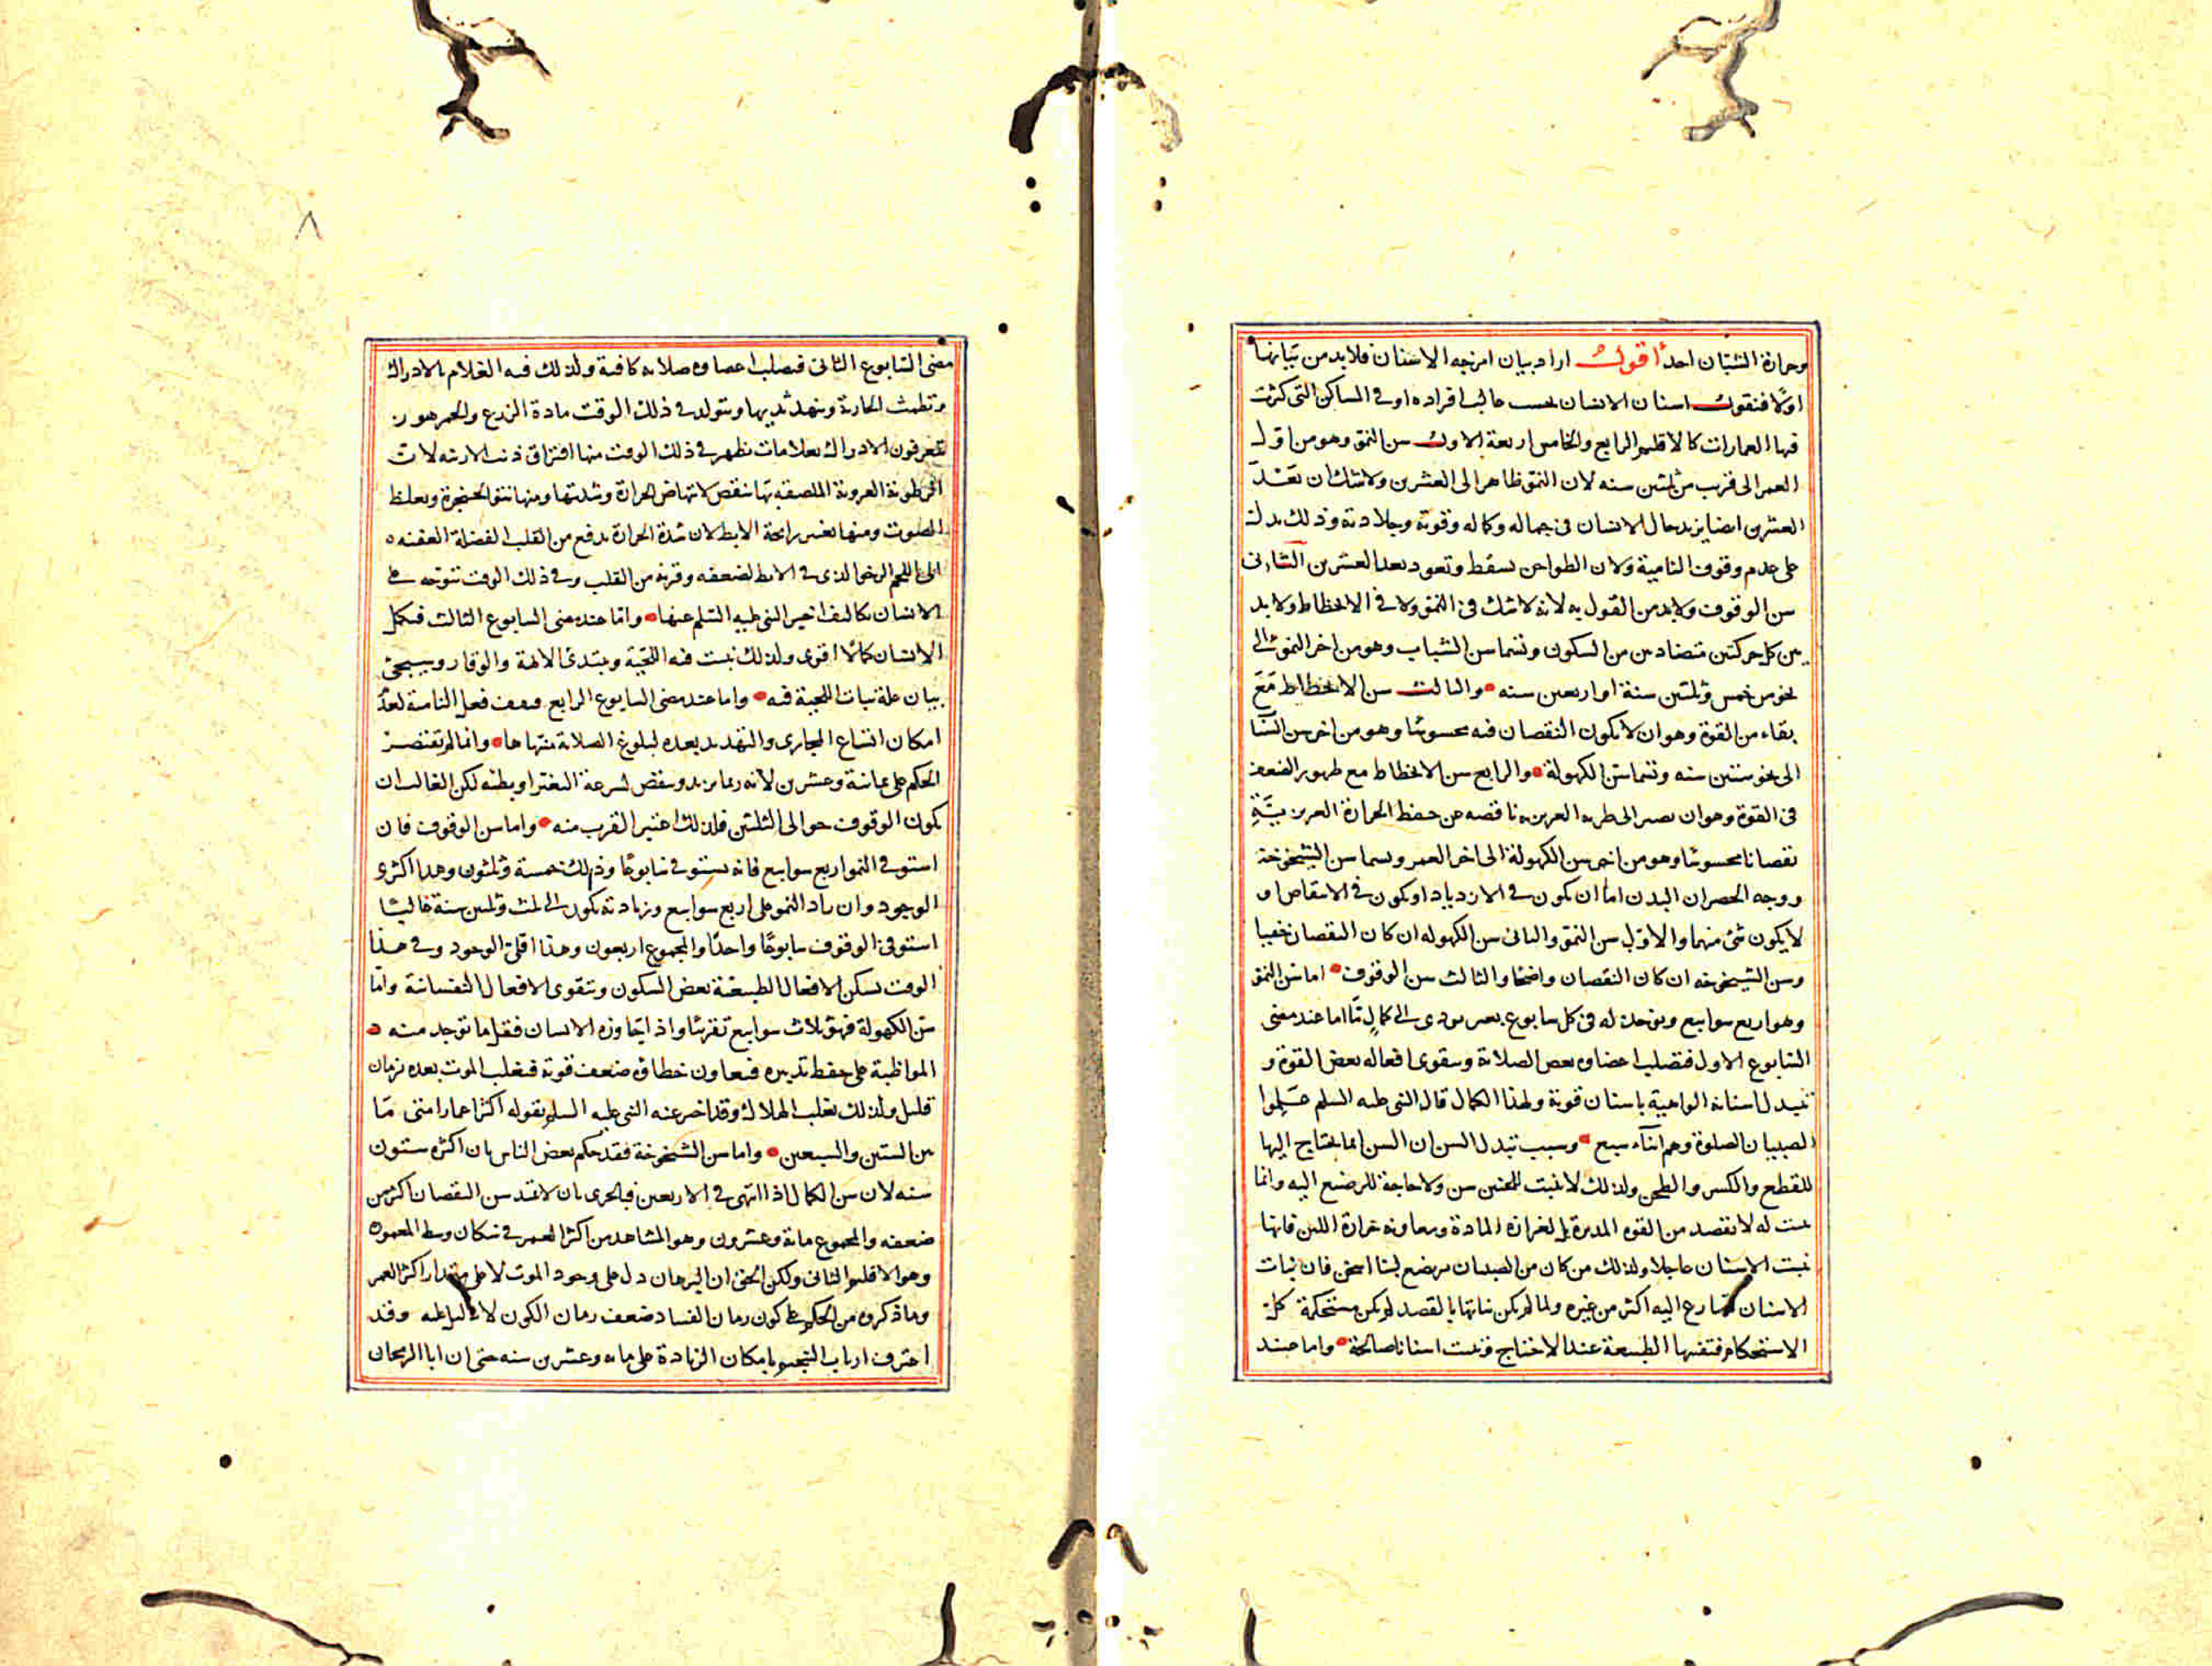 وحرارة الشبان احد اقول اراد بيان امزجه الاسنان فلابد من بيانها
اولا فنقول اسنان الانسان بحسب غالب افراده او في المساكن التي كثرت
فيها العمارات كالاقليم الرابع والخامس اربعة الاول سن النمو وهو من اول
العمر الى قرب من ثلثين سنه لان النمو ظاهر الى العشرين ولاشك ان بعد
العشرين ايضا يزيد حال الانسان في جماله وكماله وقوته وجلادته وذلك يدل
على عدم وقوف النامية ولان الطواحن تسقط وتعود بعد العشرين الثاني
سن الوقوف ولابد من القول به لانه لاشك في النمو ولا في الانحطاط ولابد
بين كل حركتين متضادين من السكون وتسما سن الشباب وهو من اخر النمو الى
نحو من خمس وثلثين سنة او اربعين سنه والثالث سن الانحطاط مع
بقاء من القوة وهو ان لايكون النقصان فيه محسوسا وهو من اخر سن الشبا
الى نحو ستين سنه وتسما سن الكهولة والرابع سن الانحطاط مع ظهور الضعف
في القوة وهو ان يصير الى الغريزيه ناقصه عن حفظ الحرارة الغريزية
نقصانا محسوسا وهو من اخر سن الكهولة الى اخر العمر وتسما سن الشيخوخة
ووجه الحصر ان البدن اما ان يكون في الازدياد او يكون في الانتقاص او
لايكون شئ منهما والاول سن النمو والثاني سن الكهوله ان كان النقصان خفيا
وسن الشيخوخه ان كان النقصان واضحا والثالث سن الوقوف اما سن النمو
وهو اربع سوابيع ويوجد له في كل سابوع يودى الى كمال ما اما عند مضى
السابوع الاول فتصلب اعضاوه بعض الصلابة وتقوى افعاله بعض القوة و
تتبدل اسنانه الواهية باسنان قوية ولهذا الكمال قال النبي عليه السلم علموا
الصبيان الصلوة وهم ابناء سبع وسبب تبدل السن ان السن انما يحتاج اليها
للقطع والكسر والطحن ولذلك لاتنبت للجنين سن ولا حاجة للرضيع اليه وانما
تنبت له لا بقصد من القوه المدبرة بل لغزاره المادة ومعاونه حرارة اللبن فانها
تنبت الاسنان عاجلا ولذلك من كان من الصبيان يرضع لبنا اسخن فان نبات
الاسنان تسارع اليه اكثر من غيره ولما لم يكن نباتها بالقصد لم يكن مستحكمة كل
الاستحكام فتنقيها الطبيعة عند الاحتياج وتنبت اسنانا صالحة واما عند
مضى السابوع الثاني فيصلب اعضاوه صلابه كافية ولذلك فيه الغلام بالادراك
وتطمث الجارية وينهد ثديها ويتولد في ذلك الوقت مادة الزرع والجمهور
يعرفون الادراك بعلامات تظهر في ذلك الوقت منها افتراق ذنب الارنبه لان
الرطوبة الغروية الملصقه بها تنقص لانتهاض الحرارة وشدتها ومنها نتو الحنجرة وغلظ
الصوت ومنها تغير رايحة الابط لان شدة الحرارة تدفع من القلب الفضلة العفنه
الى اللحم الرخو الذى في الابط لضعفه وقربه من القلب وفي ذلك الوقت تتوجه على
الانسان تكاليف اخبر النبي عليه السلم عنها واما عند مضى السابوع الثالث فيكمل
الانسان كمالا اقوى ولذلك نبت فيه اللحية ويبتدئ الابهة والوقار وسيجئ
بيان علة نبات اللحية فيه واما عند مضى السابوع الرابع فيقف فعل النامية لعدم
امكان اتساع المجارى والتمديد بعده لبلوغ الصلابة منتهاها وانما لم تقتصر
الحكم على ثمانية وعشرين لانه ربما يزيد وينقص لسرعة التغير او بطئه لكن الغالب ان
يكون الوقوف حوالى الثلثين فلذلك اعتبر القرب منه واما سن الوقوف فان
استوفى النمو اربع سوابيع فانه يستوفى سابوعا وذلك خمسة وثلثون وهذا اكثرى
الوجود وان زاد النمو على اربع سوابيع وزيادته تكون الى ثلث وثلثين سنة غالبا
استوفى الوقوف سابوعا واحدا والمجموع اربعون وهذا اقل الوجود وفي هذا
الوقت تسكن الافعال الطبيعية بعض السكون وتتقوى الافعال النفسانية واما
سن الكهولة فهو ثلاث سوابيع تقريبا واذا تجاوزه الانسان فقلما توجد منه
المواظبة على حفظ تدبيره فيعاون خطاؤه ضعف قوته فيغلب الموت بعده بزمان
قليل ولذلك يغلب الهلاك وقد اخبر عنه النبي عليه السلم بقوله اكثر اعمار امتى ما
بين الستين والسبعين واما سن الشيخوخة فقد حكم بعض الناس بان اكثره ستون
سنه لان سن الكمال اذا انتهى في الاربعين فبالحرى بان لاتمتد سن النقصان اكثر من
ضعفه والمجموع مائة وعشرون وهو المشاهد من اكثر العمر في سكان وسط المعموره
وهو الاقليم الثاني ولكن الحق ان البرهان دل على وجود الموت لا على مقدار اكثر العمر
وما ذكروه من الحكم على كون زمان الفساد ضعف زمان الكون لا دليل عليه وقد
اعترف ارباب التنجيم بامكان الزيادة على مايه وعشرين سنه حتى ان ابا الريحان
٨